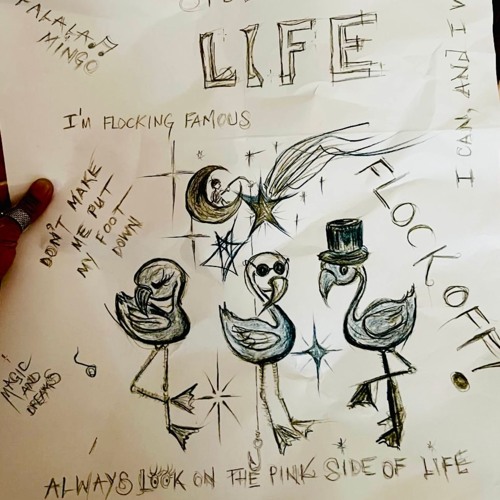 FALALA
MINGO
LIFE
I CAN, AND I
I'M FLOCKING FAMOUS
DON'T MAKE
ME PUT
MY FOOT
DOWN
FLOCK OFF!
MAGIC
AND
DREAMS
ALWAYS LOOK ON THE PINK SIDE OF LIFE